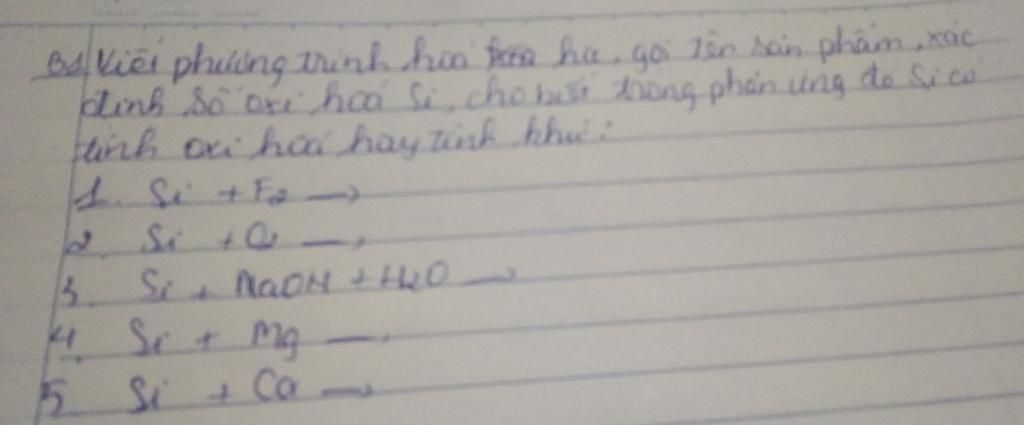 Bd Viết phương trình hoá hoá ha, gọi tên sản phẩm, xác
định số oxi hoá Si, cho biết trong phản ứng đó Si có
tính oxi hoá hay tính khử:
1. Si + F2 →
2. Si + O2 →
3. Si + NaOH + H2O →
4. Si + Mg →
5 Si + Ca →